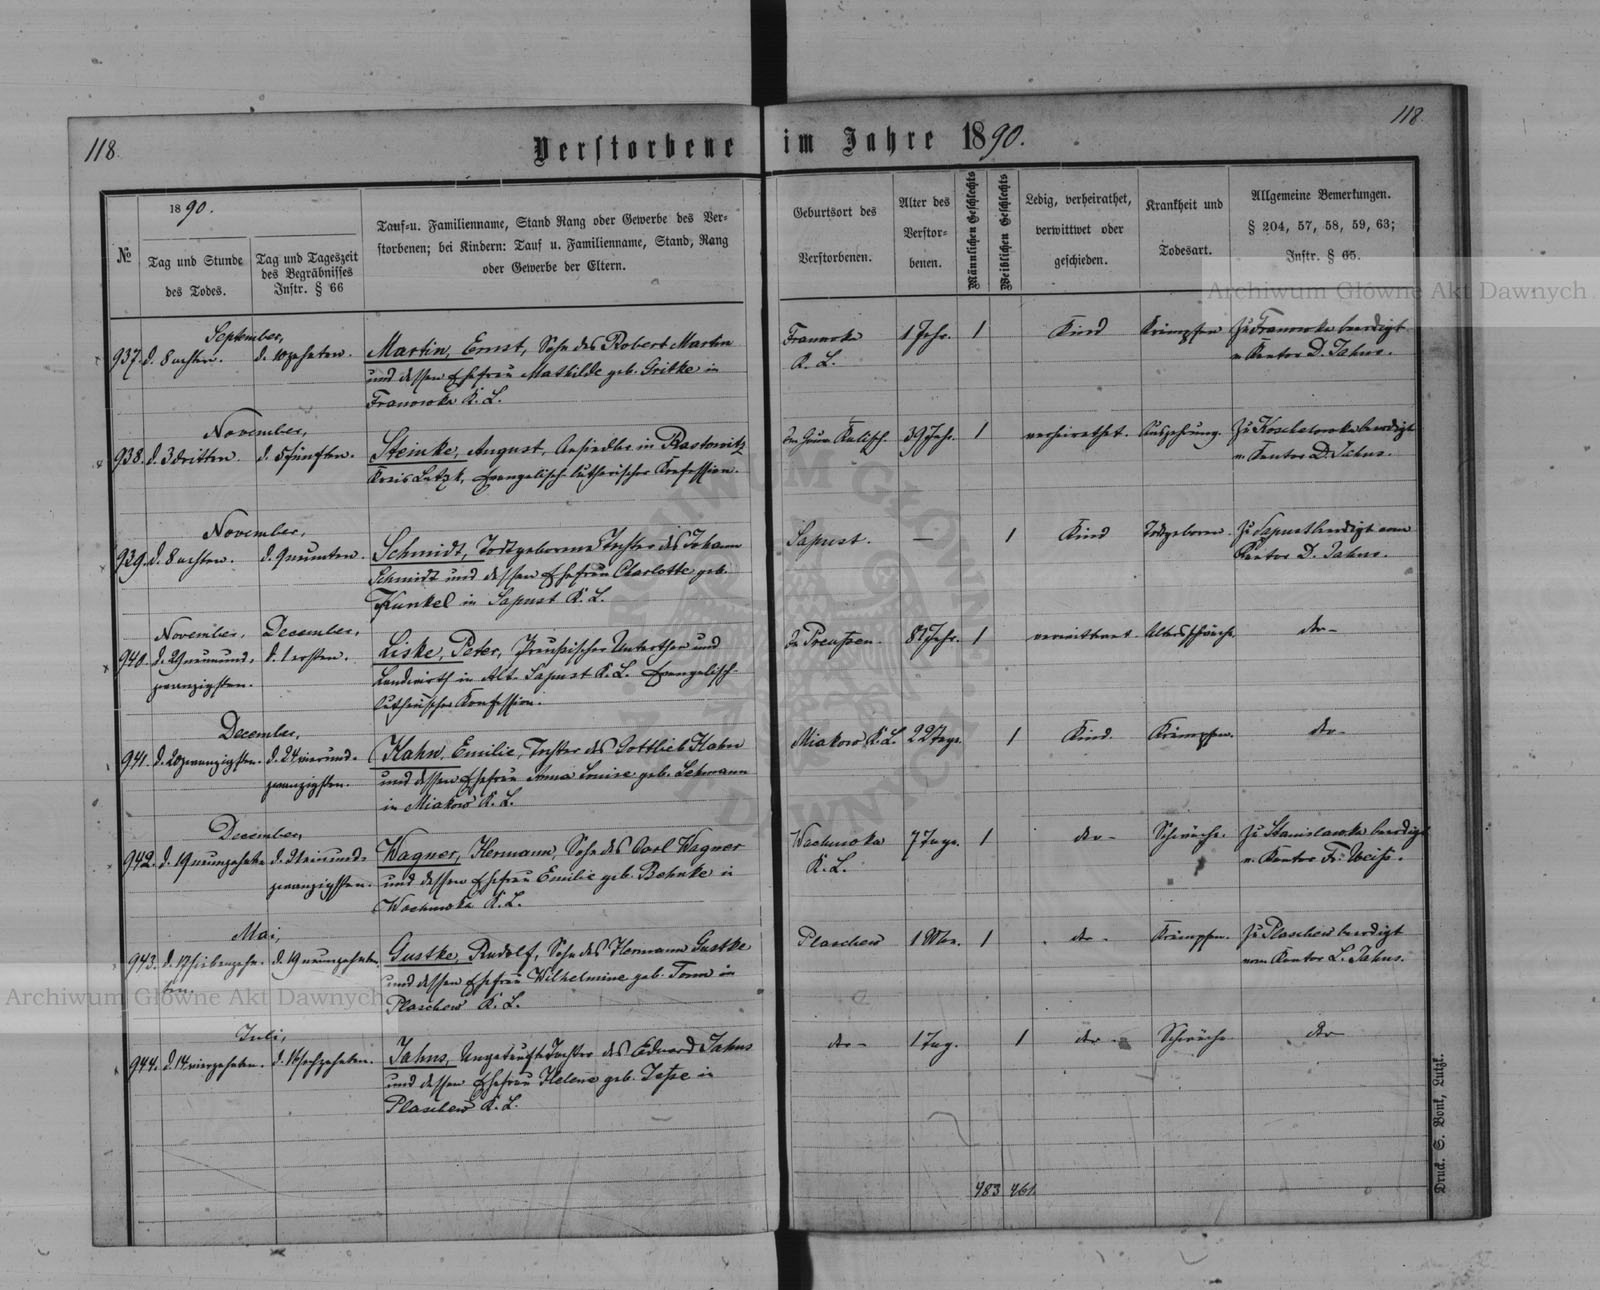 118
118
Verstorbene im Jahre 1890.
№
1890.
Tag und Stunde des Todes.
Tag und Tageszeit des Begräbnisses Instr. § 66
Tauf-u. Familienname, Stand Rang oder Gewerbe des Ver-
storbenen; bei Kindern: Tauf u. Familienname, Stand, Rang
oder Gewerbe der Eltern.
Geburtsort des Verstorbenen.
Alter des Verstor-benen.
Männlichen Geschlechts
Weiblichen Geschlechts
Ledig, verheirathet, verwittwet oder geschieden.
Krankheit und Todesart.
Allgemeine Bemerkungen.
§ 204, 57, 58, 59, 63;
Instr. § 65.
September,
937. d. 8 achten. d. 10 zehnten. Martin, Ernst, Sohn des Robert Martin
und dessen Ehefrau Mathilde geb. Gritke in
Franowka K. L.
Franowka K. L. 1 Jahr. 1 Kind Krämpfen Zu Franowka beerdigt
v. Kantor D. Jahns.
November,
938. d. 3 dritten. d. 5 fünften. Steinke, August, Ansiedler in Rastowitz
Kreis Lutzk, Evangelisch-lutherischer Konfession.
Im Gouv. Kalisch. 39 Jahr. 1 verheirathet. Auszehrung.
v. Kantor D. Jahns.
November,
939. d. 8 achten. d. 9 neunten. Schmidt, Todtgeborene Tochter des Johann
Schmidt und dessen Ehefrau Charlotte geb.
Kunkel in Sapust K. L.
Sapust. — 1 Kind Todtgeboren. Zu Sapust beerdigt vom
Kantor D. Jahns.
November, December,
940. d. 29 neunund- d. 1 ersten. Liske, Peter, Preußischer Unterthan und
zwanzigsten. Landwirth in Alt-Sapust K. L. Evangelisch-
lutherischer Konfession.
In Preußen. 81 Jahr. 1 verwittwet Altersschwäche dto-
December,
941. d. 20 zwanzigsten. d. 24 vierund- Hahn, Emilie, Tochter des Gottlieb Hahn
zwanzigsten. und dessen Ehefrau Anna Louise geb. Lehmann
in Miakow K. L.
Miakow K. L. 22 Tage. 1 Kind. Krämpfen. dto-
December,
942. d. 19 neunzehnten d. 21 einund- Wagner, Hermann, Sohn des Carl Wagner
zwanzigsten. und dessen Ehefrau Emilie geb. Behnke in
K. L.
K. L. 7 Tage. 1 dto- Schwäche. Zu Stanislawka beerdigt
v. Kantor Fr. Weiß.
Mai,
943. d. 17 siebenzehn- d. 19 neunzehnten. Gustke, Rudolf, Sohn des Hermann Gustke
ten. und dessen Ehefrau Wilhelmine geb. Torm in
Plaschew K. L.
Plaschew 1 Wo. 1 dto- Krämpfen. Zu Plaschew beerdigt
vom Kantor L. Jahns.
Juli,
944. d. 14 vierzehnten. d. 16 sechzehnten. Jahns, Ungetaufte Tochter des Eduard Jahns
und dessen Ehefrau Helene geb. Jeske in
Plaschew K. L.
dto- 1 Tag. 1 dto- Schwäche dto-
483 461
Druck. S. Bonk, Lutzk.
Archiwum Główne Akt Dawnych
Archiwum Główne Akt Dawnych
ARCHIWUM GŁÓWNE AKT DAWNYCH